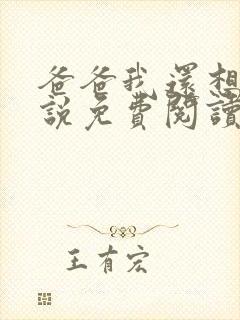 爸爸我還想
說免費閱讀
王有宏